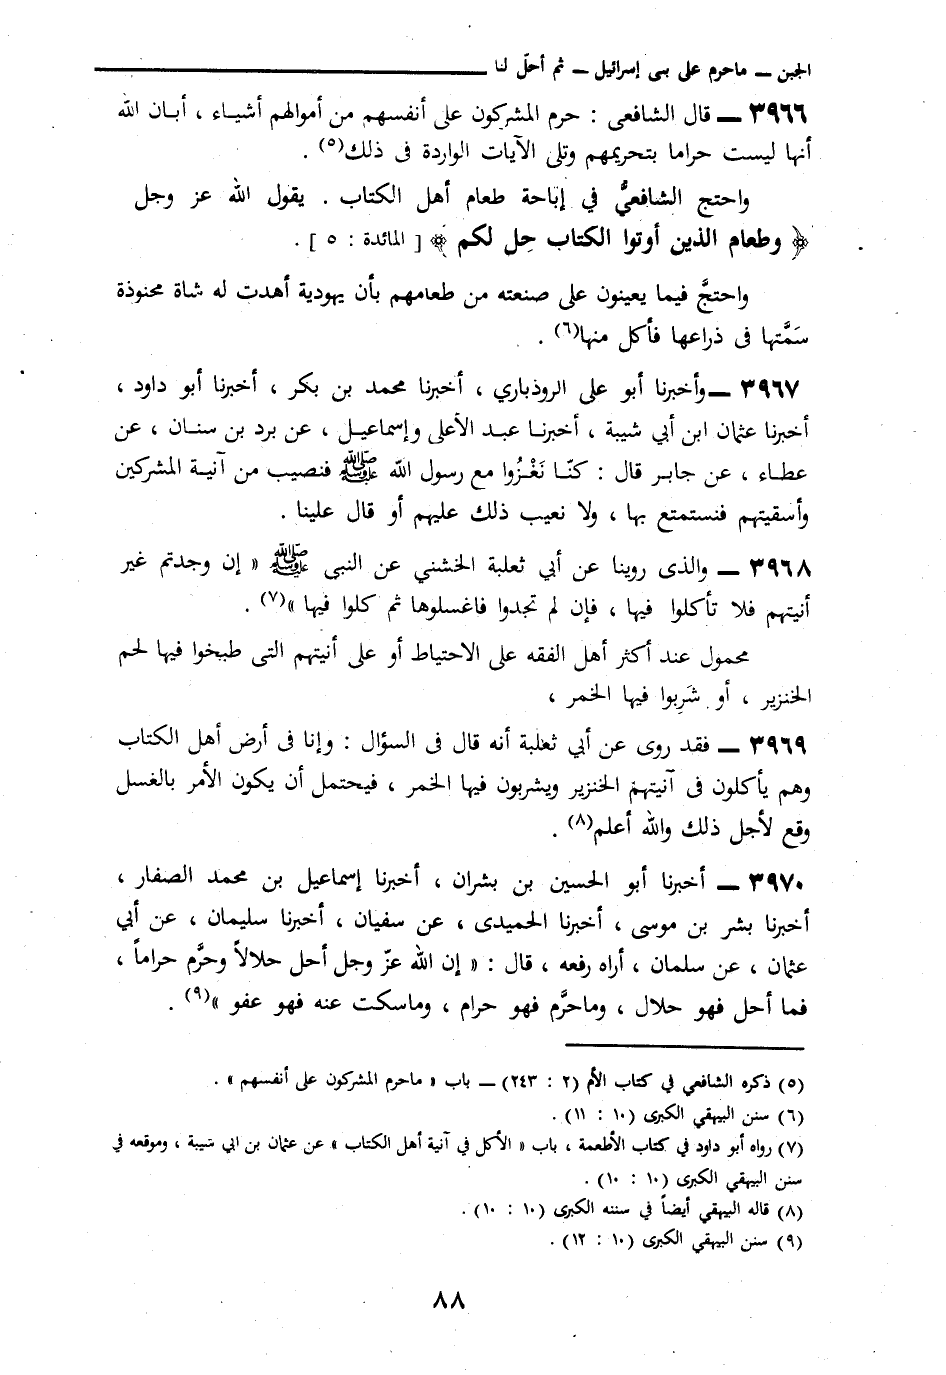 الجبن ــ ماحرم على بنى إسرائيل ــ ثم أحلّ لنا
٣٩٦٦ ــ قال الشافعى : حرم المشركون على أنفسهم من أموالهم أشياء ، أبان الله
أنها ليست حراما بتحريمهم وتلى الآيات الواردة فى ذلك(٥) .
واحتج الشافعيُّ في إباحة طعام أهل الكتاب . يقول الله عز وجل
﴿ وطعام الذين أوتوا الكتاب حِل لكم ﴾ [ المائدة : ٥ ] .
واحتجَّ فيما يعينون على صنعته من طعامهم بأن يهودية أهدت له شاة محنوذة
سَمَّتها فى ذراعها فأكل منها(٦) .
٣٩٦٧ ــ وأخبرنا أبو على الروذباري ، أخبرنا محمد بن بكر ، أخبرنا أبو داود ،
أخبرنا عثمان ابن أبي شيبة ، أخبرنا عبد الأعلى وإسماعيل ، عن برد بن سنان ، عن
عطاء ، عن جابر قال : كنّا نَغْزُوا مع رسول الله ﷺ فنصيب من آنية المشركين
وأسقيتهم فنستمتع بها ، ولا نعيب ذلك عليهم أو قال علينا .
٣٩٦٨ ــ والذى روينا عن أبي ثعلبة الخشني عن النبى ﷺ « إن وجدتم غير
أنيتهم فلا تأكلوا فيها ، فإن لم تجدوا فاغسلوها ثم كلوا فيها »(٧) .
محمول عند أكثر أهل الفقه على الاحتياط أو على أنيتهم التى طبخوا فيها لحم
الخنزير ، أو شَرِبوا فيها الخمر ،
٣٩٦٩ ــ فقد روى عن أبي ثعلبة أنه قال فى السؤال : وإنا فى أرض أهل الكتاب
وهم يأكلون فى آنيتهم الخنزير ويشربون فيها الخمر ، فيحتمل أن يكون الأمر بالغسل
وقع لأجل ذلك والله أعلم(٨) .
٣٩٧٠ ــ أخبرنا أبو الحسين بن بشران ، أخبرنا إسماعيل بن محمد الصفار ،
أخبرنا بشر بن موسى ، أخبرنا الحميدى ، عن سفيان ، أخبرنا سليمان ، عن أبي
عثمان ، عن سلمان ، أراه رفعه ، قال : « إن الله عزّ وجل أحل حلالاً وحرَّم حراماً ،
فما أحل فهو حلال ، وماحرَّم فهو حرام ، وماسكت عنه فهو عفو »(٩) .
(٥) ذكره الشافعي في كتاب الأم (٢ : ٢٤٣) ــ باب « ماحرم المشركون على أنفسهم » .
(٦) سنن البيهقي الكبرى (١٠ : ١١) .
(٧) رواه أبو داود في كتاب الأطعمة ، باب « الأكل في آنية أهل الكتاب » عن عثمان بن ابي شيبة ، وموقعه في
سنن البيهقي الكبرى (١٠ : ١٠) .
(٨) قاله البيهقي أيضاً في سننه الكبرى (١٠ : ١٠) .
(٩) سنن البيهقي الكبرى (١٠ : ١٢) .
٨٨